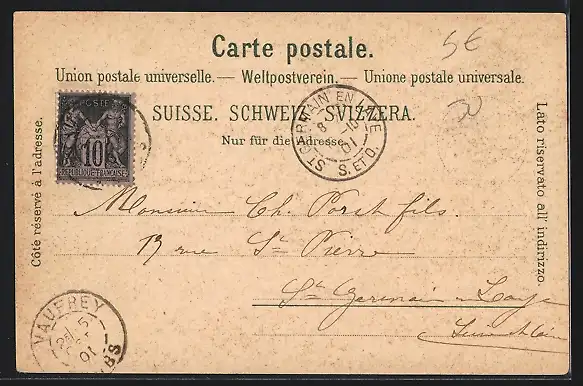 Carte postale.
5€
Union postale universelle. — Weltpostverein. — Unione postale universale.
SUISSE. SCHWEIZ. SVIZZERA.
Nur für die Adresse.
Côté réservé à l'adresse.
Lato riservato all' indirizzo.
POSTE
10
REPUBLIQUE FRANÇAISE
ST GERMAIN EN LAYE
8 10
01
S. ET O.
Monsieur Ch. Porst fils.
13 rue St Pierre
St Germain - Laye
VAUFREY
01
BS